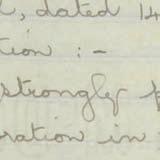 , dated 14
tion :-
strongly p
oration in